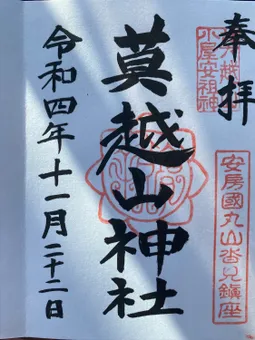 奉拝
小屋安祖神
安房國丸山沓見鎮座
莫越山神社
令和四年十一月二十二日